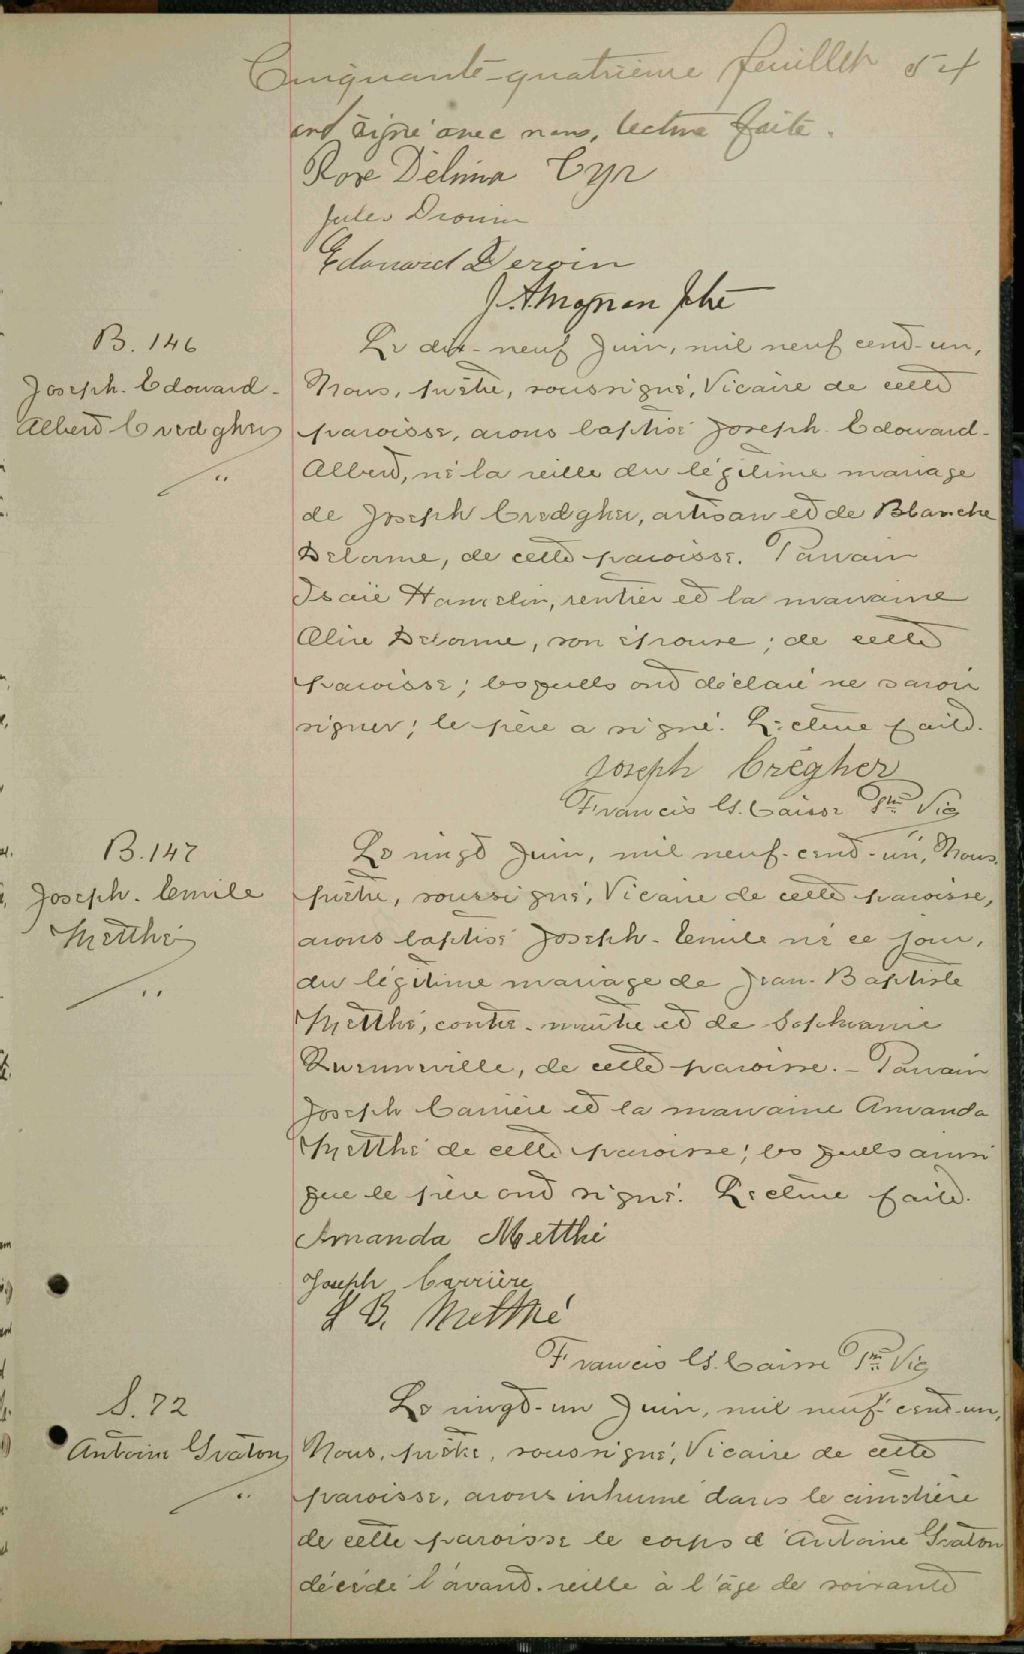 Cinquante-quatrième feuillet 54
ont signé avec nous, lecture faite.
Rose Délima Cyr
Jules Drouin
Edouard Deroin
J. A. Magnan Ptre
B. 146
Joseph-Edouard-
Albert Credgher
Le dix-neuf Juin, mil neuf cent-un,
Nous, prêtre, soussigné, Vicaire de cette
paroisse, avons baptisé Joseph-Edouard-
Albert, né la veille du légitime mariage
de Joseph Credgher, artisan et de Blanche
Delorme, de cette paroisse. Parrain
Isaïe Hamelin, rentier et la marraine
Alire Delorme, son épouse; de cette
paroisse; lesquels ont déclaré ne savoir
signer; le père a signé. Lecture faite.
Joseph Crégher
Francis Caisse Ptre Vic
B. 147
Joseph-Emile
Metthé
Le vingt Juin, mil neuf-cent-un, Nous,
prêtre, soussigné, Vicaire de cette paroisse,
avons baptisé Joseph-Emile né ce jour,
du légitime mariage de Jean-Baptiste
Metthé, contre-maître et de Sophranie
Quenneville, de cette paroisse. - Parrain
Joseph Carrière et la marraine Amanda
Metthé de cette paroisse; lesquels ainsi
que le père ont signé. Lecture faite.
Amanda Metthé
Joseph Carrière
J B. Metthé
Francis Caisse Ptre Vic
S. 72
Antoine Graton
Le vingt-un Juin, mil neuf-cent-un,
Nous, prêtre, soussigné, Vicaire de cette
paroisse, avons inhumé dans le cimetière
de cette paroisse le corps d'Antoine Graton
décédé l'avant-veille à l'âge de soixante